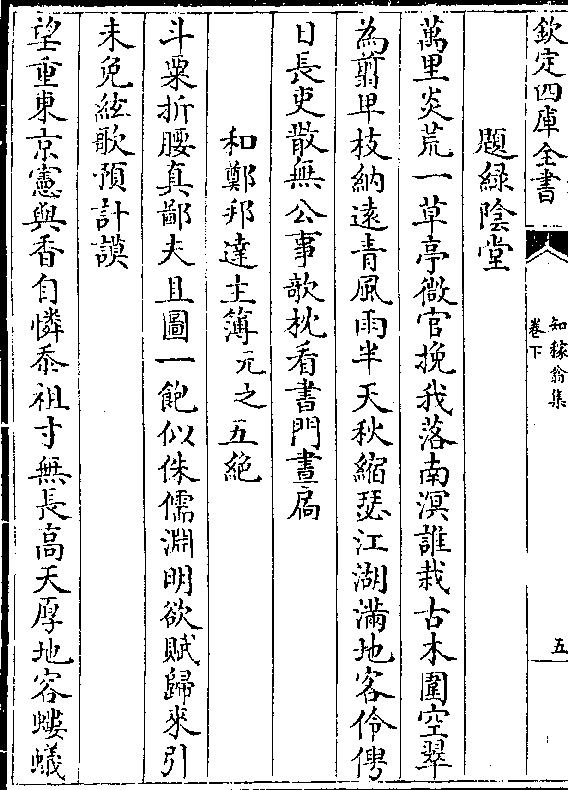 欽定四庫全書
知稼翁集
卷下
五
題緑陰堂
萬里炎荒一草亭微官挽我落南溟誰栽古木圍空翠
為翦甲枝納逺青風雨半天秋縮瑟江湖滿地客伶俜
日長吏散無公事欹枕看書門晝扃
和鄭邦達主簿元之五絶
斗粟折腰真鄙夫且圖一飽似侏儒淵明欲賦歸來引
未免絃歌預計謨
望重東京憲與香自憐忝祖寸無長高天厚地容螻蟻